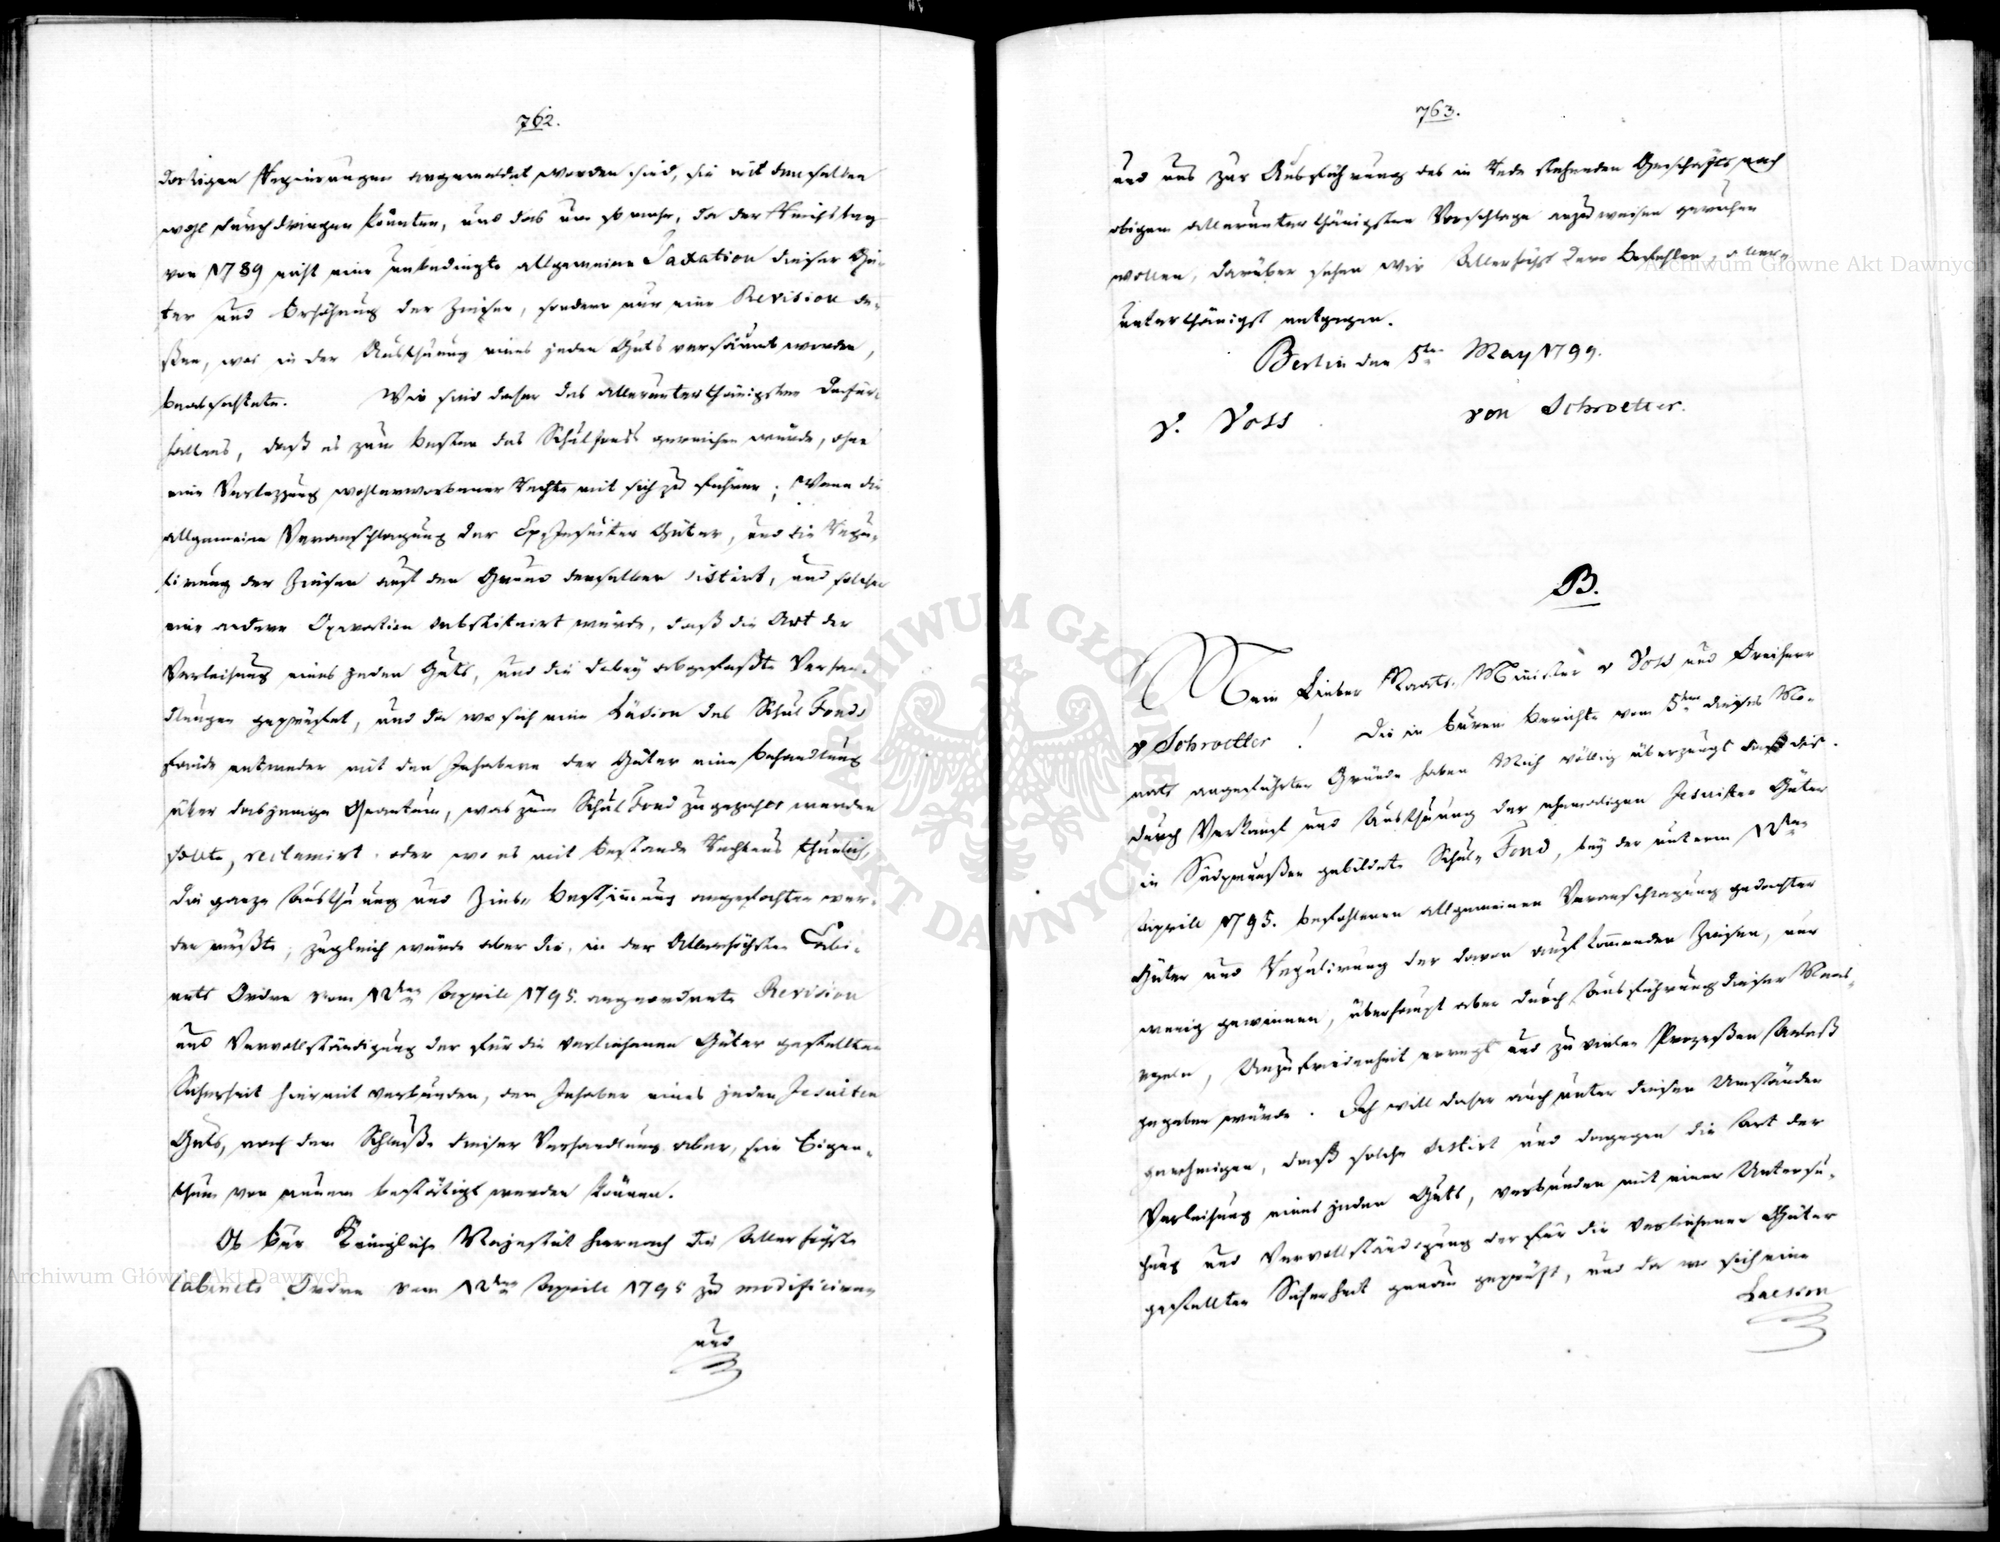 762.
dortigen Regierungen angewendet worden sind, sie mit denselben
wohl durchdringen könnten, und das um so mehr, da der Reichstag
von 1789 nicht eine unbedingte allgemeine Taxation dieser Gü-
ter und Erhöhung der Zinsen, sondern nur eine Revision de-
ßen, was in der Austhuung eines jeden Guts versäumt worden,
beabsichtete. Wir sind daher des allerunterthänigsten Dafür-
haltens, daß es zum besten des Schulfonds gereichen würde, ohne
eine Verletzung wohlerworbener Rechte mit sich zu führen; Wenn die
allgemeine Veranschlagung der ExJesuiter Güter, und die Regu-
lirung der Zinsen auf den Grund derselben sistirt, und solcher
eine andere Operation substituirt würde, daß die Art der
Verleihung eines jeden Guts, und die dabey abgefaßte Verhan-
dlungen geprüfet, und da wo sich eine Läsion des Schul Fonds
fände entweder mit den Inhabern der Güter eine Behandlung
über dasjenige Quantum, was zum Schul Fond zugezahlt werden
sollte, reclamirt, oder wo es mit Bestande Rechtens thunlich,
die ganze Austhuung und Zins-Bestimmung angefochten wer-
den müßte; zugleich würde aber die, in der Allerhöchsten Cabi-
nets Ordre vom 12ten Aprill 1795. angeordnete Revision
und Vervollständigung der für die verliehenen Güter gestellten
Sicherheit hiermit verbunden, den Inhaber eines jeden Jesuiten
Guts, nach dem Schluße dieser Verhandlung aber, sein Eigen-
thum von neuem bestätigt werden können.
Ob Eur Königliche Majestät hiernach die Allerhöchste
Cabinets Ordre vom 12ten Aprill 1795 zu modificiren
und
763.
und uns zur Ausführung des in Rede stehenden Geschäfts nach
obigem allerunterthänigsten Vorschlage anzuweisen geruhen
wollen, darüber sehen wir Allerhöchst Dero Befehlen, aller-
unterthänigst entgegen.
Berlin den 5ten May 1799.
v. Voss von Schroetter.
B.
Mein Lieber Staats-Minister v Voss und Freiherr
v Schroetter! Die in Euren Berichte vom 5ten dieses Mo-
nats angeführten Gründe haben Mich völlig überzeugt daß der
durch Verkauf und Austhuung der ehemaligen Jesuiter Güter
in Südpreußen gebildete Schul-Fond, bey der unterm 12ten
Aprill 1795. befohlenen allgemeinen Veranschlagung gedachter
Güter und Regulirung der davon aufkommenden Zinsen, nur
wenig gewinnen, überhaupt aber durch Ausführung dieser Maas-
regeln, Unzufriedenheit erregt und zu vielen Prozeßen Anlaß
gegeben würde. Ich will daher auch unter diesen Umständen
genehmigen, daß solche sistirt und dagegen die Art der
Verleihung eines jeden Guts, verbunden mit einer Untersu-
hung und Vervollständigung der für die verliehenen Güter
gestellten Sicherheit genau geprüft, und da wo sich eine
Laesion
ARCHIWUM GŁÓWNE AKT DAWNYCH
Archiwum Główne Akt Dawnych
Archiwum Główne Akt Dawnych